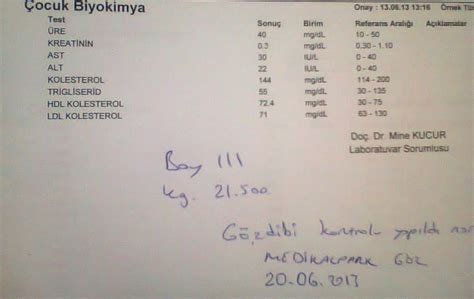 Çocuk Biyokimya Onay : 13.06.13 13:16 Örnek Tür
Test Sonuç Birim Referans Aralığı Açıklamalar
ÜRE 40 mg/dL 10 - 50
KREATİNİN 0.3 mg/dL 0.30 - 1.10
AST 30 IU/L 0 - 40
ALT 22 IU/L 0 - 40
KOLESTEROL 144 mg/dL 114 - 200
TRİGLİSERİD 55 mg/dL 30 - 135
HDL KOLESTEROL 72.4 mg/dL 30 - 75
LDL KOLESTEROL 71 mg/dL 63 - 130
Doç. Dr. Mine KUCUR
Laboratuvar Sorumlusu
Boy 111
kg. 21.500
Gözdibi kontrolu yapıldı
MEDİKALPARK GÖZ
20-06.2013